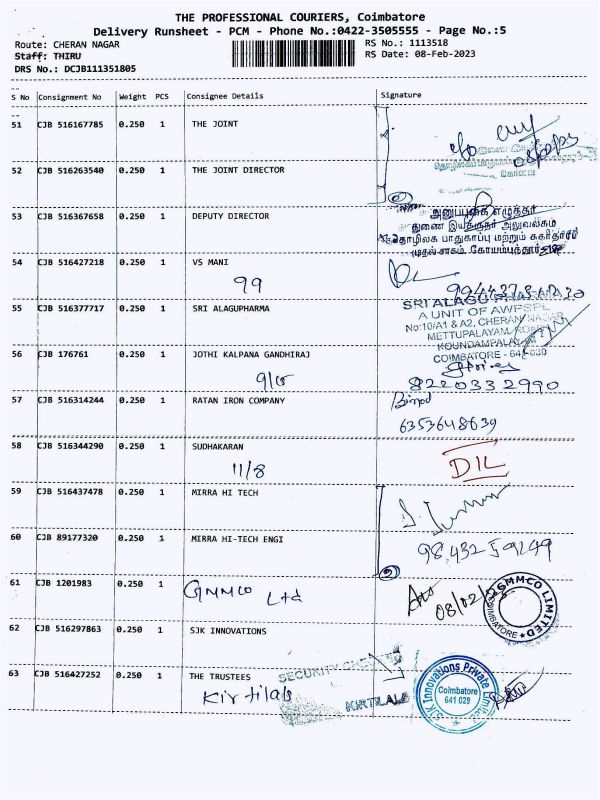 THE PROFESSIONAL COURIERS, Coimbatore
Delivery Runsheet - PCM - Phone No.:0422-3505555 - Page No.:5
Route: CHERAN NAGAR RS No.: 1113518
Staff: THIRU RS Date: 08-Feb-2023
DRS No.: DCJB111351805
S No Consignment No Weight PCS Consignee Details Signature
51 CJB 516167785 0.250 1 THE JOINT
52 CJB 516263540 0.250 1 THE JOINT DIRECTOR
53 CJB 516367658 0.250 1 DEPUTY DIRECTOR
அனுப்புகை எழுத்தர்
துணை இயக்குநர் அலுவலகம்
தொழிலக பாதுகாப்பு மற்றும் சுகாதாரம்
54 CJB 516427218 0.250 1 VS MANI
99
55 CJB 516377717 0.250 1 SRI ALAGUPHARMA
SRI ALAGU PHARMA
A UNIT OF AWPSPL
No:10/A1 & A2, CHERAN NAGAR
METTUPALAYAM ROAD
KOUNDAMPALAYAM
COIMBATORE - 641 030
56 CJB 176761 0.250 1 JOTHI KALPANA GANDHIRAJ
8220332990
57 CJB 516314244 0.250 1 RATAN IRON COMPANY
6353648639
58 CJB 516344290 0.250 1 SUDHAKARAN
11/8
DIL
59 CJB 516437478 0.250 1 MIRRA HI TECH
60 CJB 89177320 0.250 1 MIRRA HI-TECH ENGI
61 CJB 1201983 0.250 1 GMMCO Ltd
GMMCO LIMITED
COIMBATORE
62 CJB 516297863 0.250 1 SJK INNOVATIONS
63 CJB 516427252 0.250 1 THE TRUSTEES
Kirtilals
SECURITY
KIRTILALS
SJK Innovations Private Limited
Coimbatore
641 029